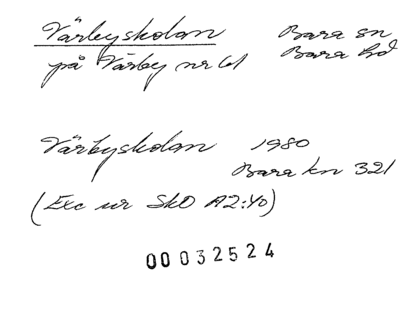 Värbyskolan Bara sn
på Värby nr 61 Bara hd
Värbyskolan 1980
Bara kn 321
(Exc ur SkO A2:40)
00032524